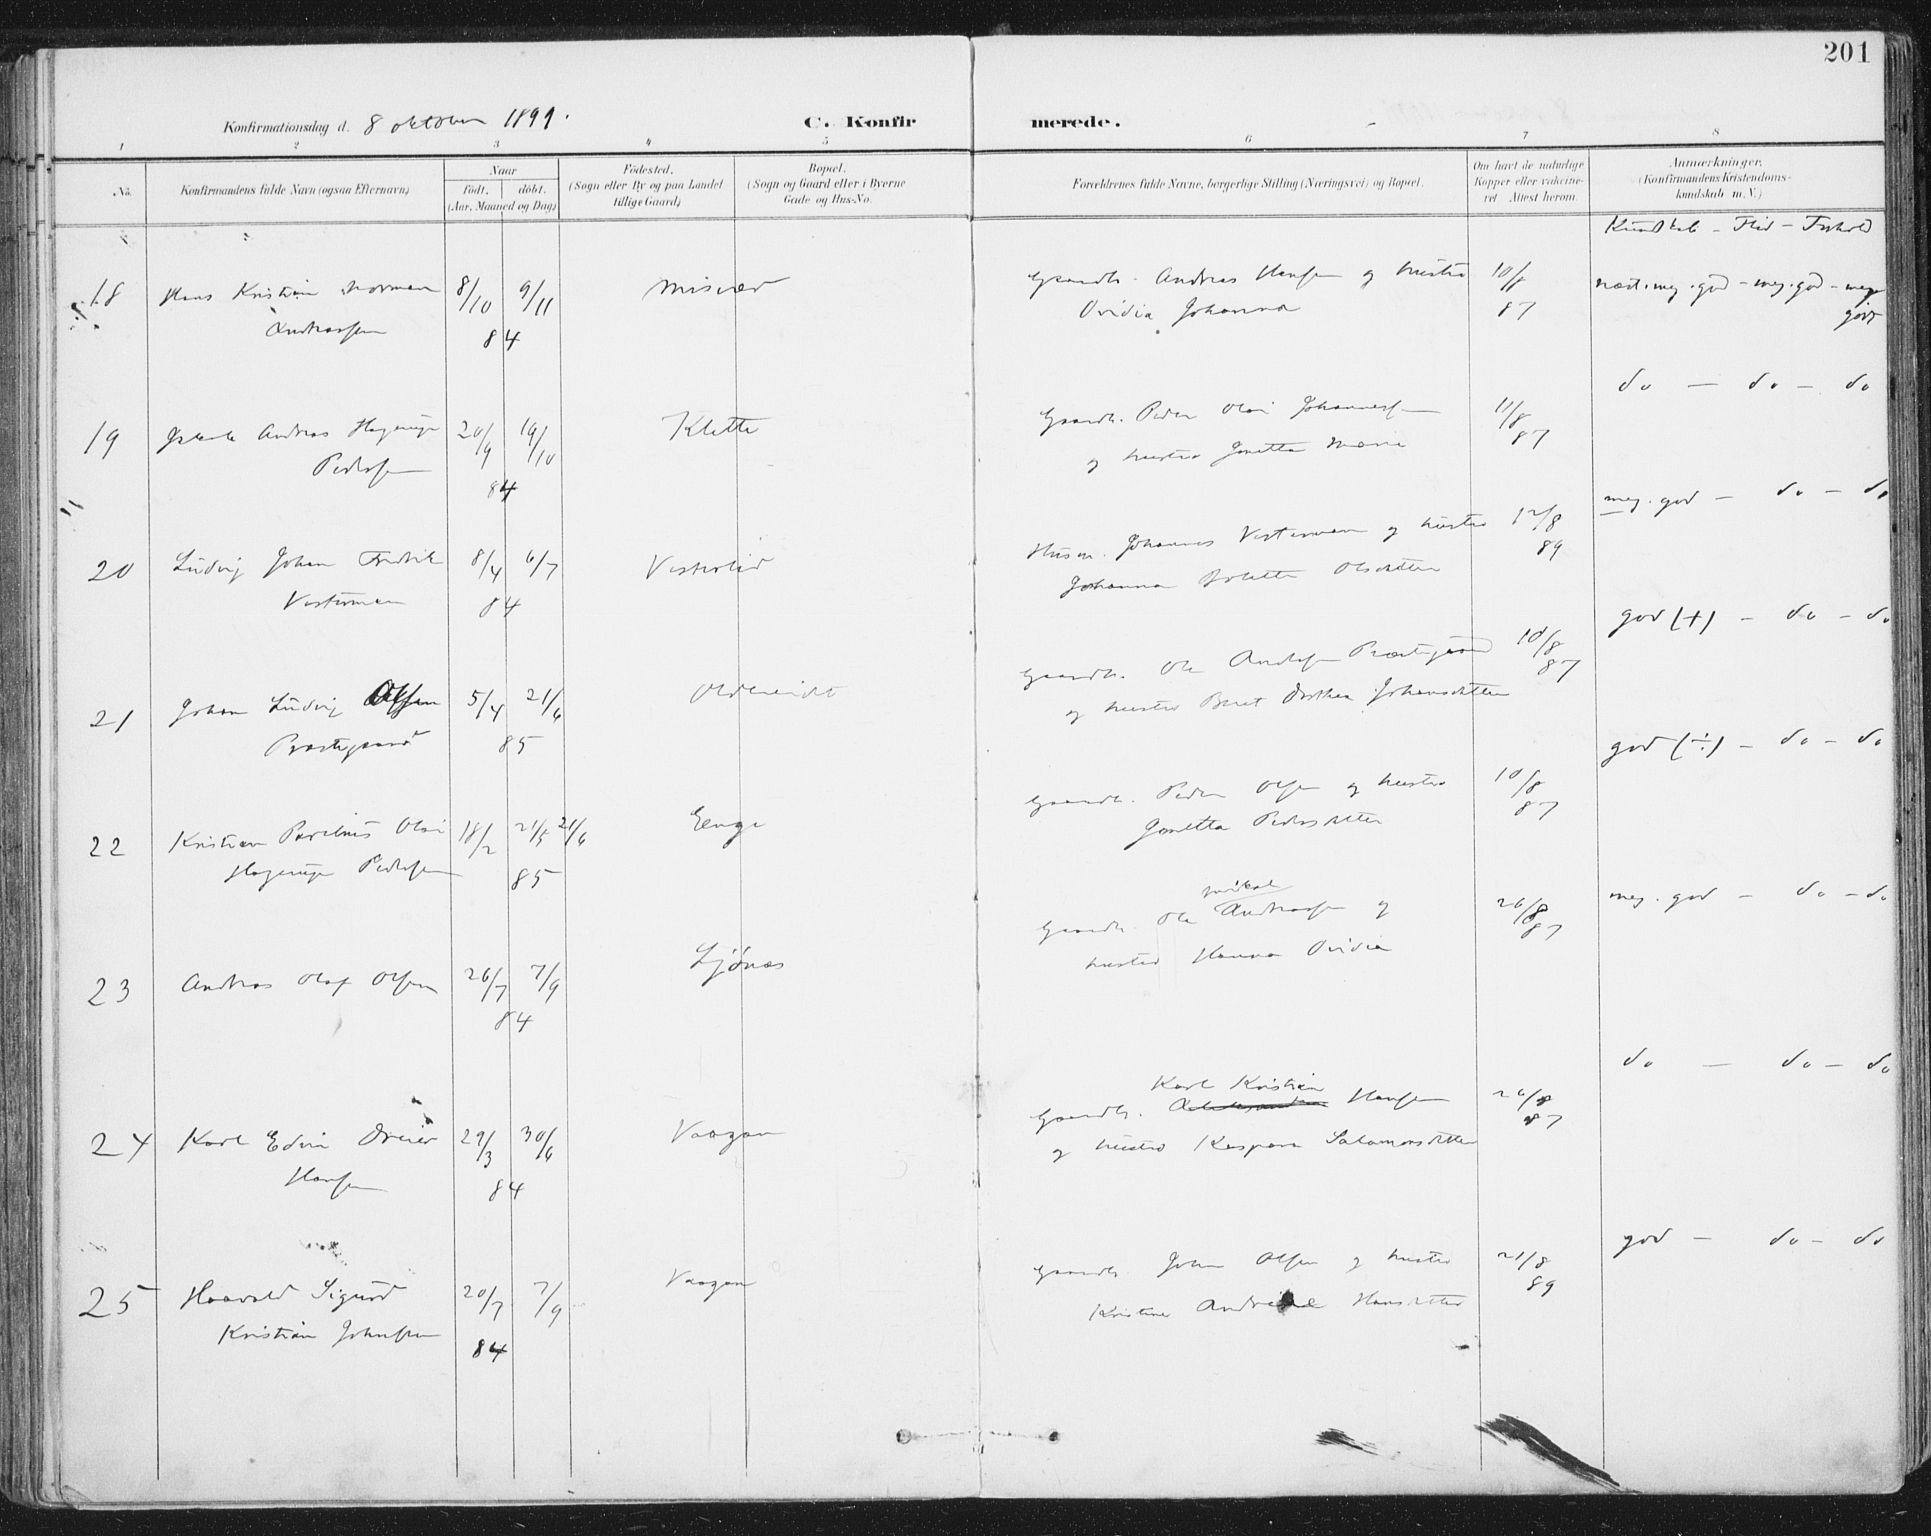 201
Konfirmationsdag d. 8 oktober 1899.
C. Konfirmerede.
1 2 3 4 5 6 7 8
No.
Konfirmandens fulde Navn (ogsaa Efternavn)
Naar
födt. döbt.
(Aar, Maaned og Dag)
Födested.
(Sogn eller By og paa Landet
tillige Gaard)
Bopæl.
(Sogn og Gaard eller i Byerne
Gade og Hus-No.
Forældrenes fulde Navne, borgerlige Stilling (Næringsvei) og Bopæl.
Om havt de naturlige
Kopper eller vakcine-
ret Attest herom.
Anmærkninger.
(Konfirmandens Kristendoms-
kundskab m. V.)
Kundskab - Flid - Forhold
18 Hans Kristian Norman 8/10 9/11 Misvær Gaardb. Andreas Hansen og hustru 10/8 næst. meg. god - meg. god - meg
Andreassen 84 Ovidia Johanna 87 godt
do - do - do
19 Andreas Hagerup 20/9 19/10 Klette Gaardb. Peder Olai Johannessen 11/8
Pedersen og hustru Jonetta Marie 87
84
meg. god - do - do
20 Ludvig Johan Fredrik 8/4 6/7 Vesterlid Husm. Johannes Vesterman og hustru 12/8
Vesterman 84 Johanna Olsdatter 89
god (+) - do - do
21 Johan Ludvig Olsen 5/4 21/6 Oldereidet Gaardb. Ole Andersen Præstegaard 10/8
Præstegaard 85 og hustru Beret Dorthea Johansdatter 87
god (÷) - do - do
22 Kristian Parelius Olai 18/2 21/5 21/6 Eenge Gaardb. Peder Olsen og hustru 10/8
Hagerup Pedersen 85 Jonetta Pedersdatter 87
Mikal
23 Andreas Olaf Olsen 26/7 7/9 Ljönes Gaardb. Ole Andreassen og 26/8 meg. god - do - do
84 hustru Hanna Ovidia 87
do - do - do
Karl Kristian
24 Karl Edvin Dreier 29/3 30/6 Vaagan Gaardb. Hansen 26/8
Hansen 84 og hustru Kaspara Salamonsdatter 87
god - do - do
25 Haavald Sigurd 20/7 7/9 Vaagan Gaardb. Johan Olsen og hustru 21/8
Kristian Johnsen 84 Kristine Andrine Hansdatter 89